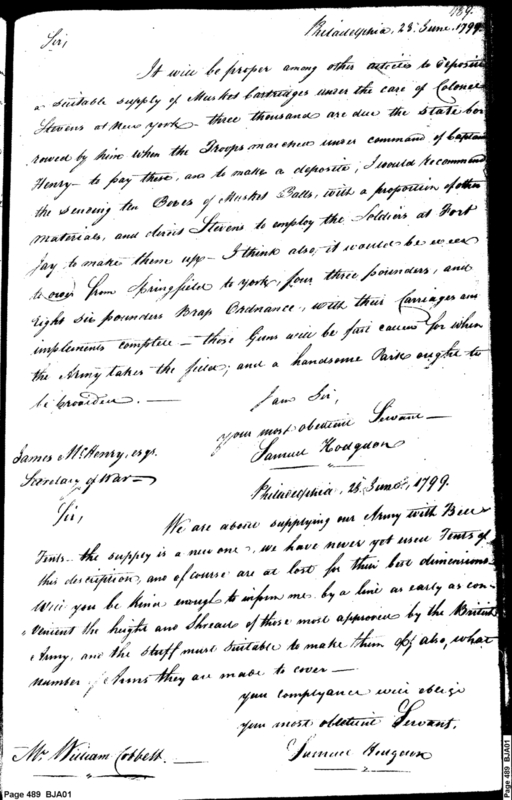 489.
Philadelphia, 28 June, 1799.
Sir,
It will be proper among other articles to deposit
a suitable supply of Musket Cartridges under the care of Colonel
Stevens at New York — three thousand are due the State bor
rowed by him when the Troops marched under command of Captain
Henry — to pay these, and to make a deposite, I would recommend
the sending ten Boxes of Musket Balls, with a proportion of other
materials, and direct Stevens to employ the Soldiers at Fort
Jay to make them up — I think also, it would be well
to order from Springfield to York, four three pounders, and
Eight six pounders Brass Ordnance, with their Carriages and
implements complete — those Guns will be first called for when
the Army takes the field, and a handsome Park ought to
be provided. —
I am Sir,
your most obedient Servant —
Samuel Hodgdon
James McHenry, esqr.
Secretary of War —
Philadelphia, 28 June, 1799.
Sir,
We are about supplying our Army with Bell
Tents — the supply is a new one, we have never yet used Tents of
this description, and of course are at lost for their best dimensions.
Will you be kind enough to inform me by a line as early as con-
venient the height and Spread of those most approved by the British
Army, and the stuff most suitable to make them of, also, what
number of Arms they are made to cover —
your complyance will oblige
your most obedient Servant,
Samuel Hodgdon
Mr. William Cobbett. —
Page 489 BJA01
Page 489 BJA01